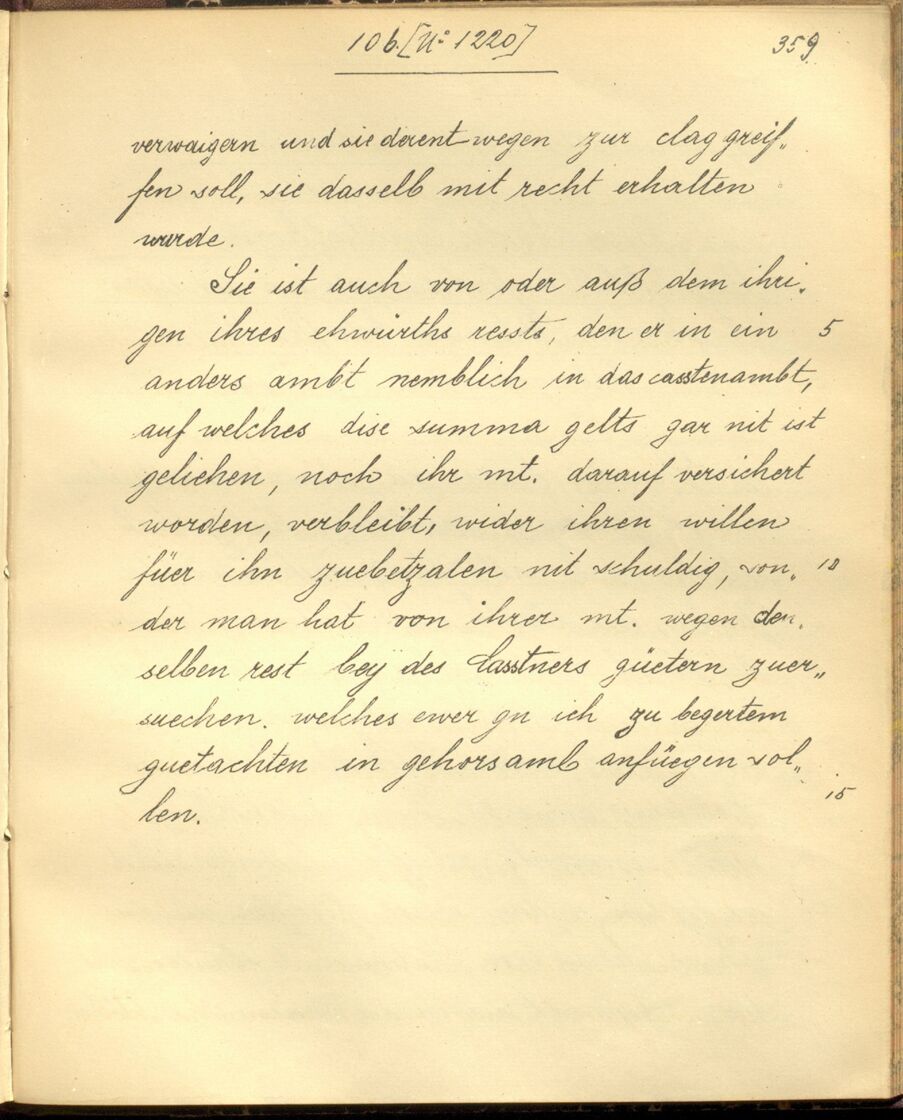 106. [No 1220]
359.
verwaigern und sie derentwegen zur clag greif„
fen soll, sie dasselb mit recht erhalten
wurde.
Sie ist auch von oder auß dem ihri„
gen ihres ehwürths ressts, den er in ein 5
anders ambt nemblich in das casstenambt,
auf welches dise summa gelts gar nit ist
geliehen, noch ihr mt. darauf versichert
worden, verbleibt, wider ihren willen
füer ihn zuebetzalen nit schuldig, son„ 10
der man hat von ihrer mt. wegen den„
selben rest beÿ des Casstners güetern zuer„
suechen. welches ewer gn ich zu begertem
guetachten in gehorsamb anfüegen sol„
len. 15